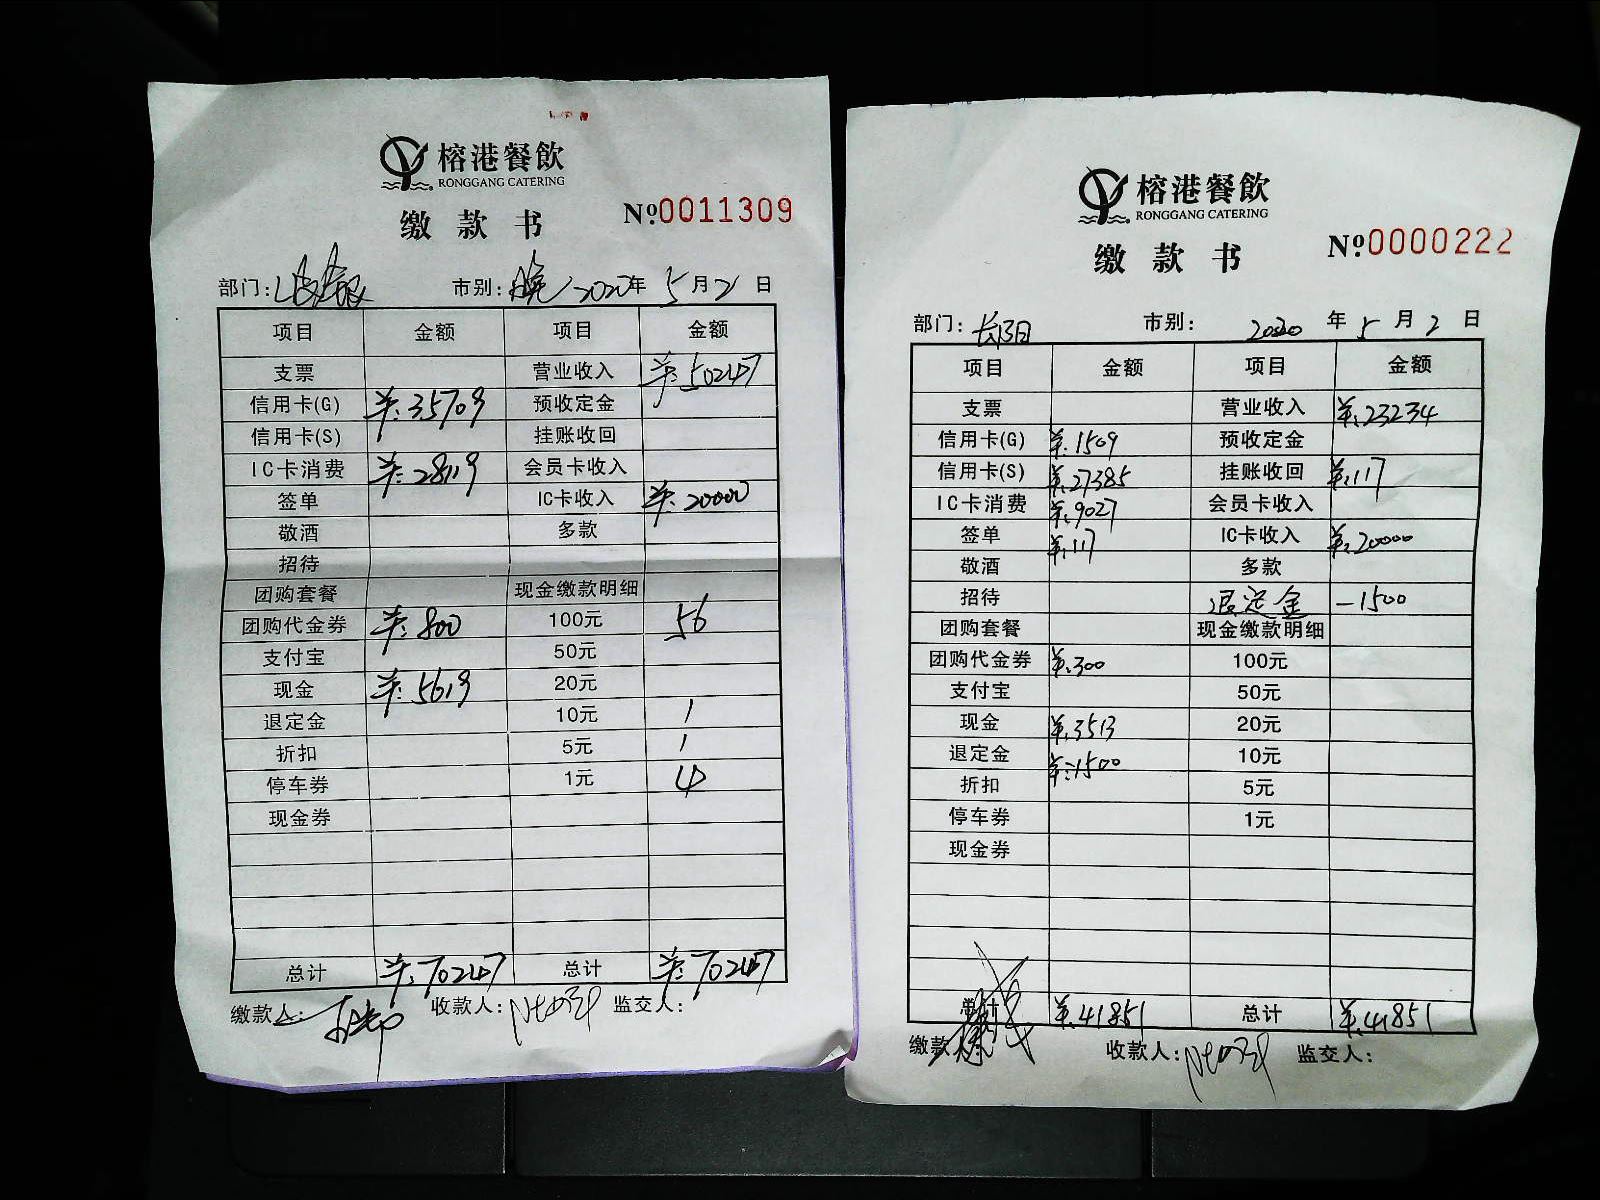 榕港餐飲
RONGGANG CATERING
缴款书
№0011309
部门: 市别:晚 2020年5月2日
项目 金额 项目 金额
支票 营业收入 ¥:50247
信用卡(G) ¥:35709 预收定金
信用卡(S) 挂账收回
IC卡消费 ¥:28119 会员卡收入
签单 IC卡收入 ¥:20000
敬酒 多款
招待
团购套餐 现金缴款明细
团购代金券 ¥:800 100元 56
支付宝 50元
现金 ¥:5619 20元
退定金 10元 1
折扣 5元 1
停车券 1元 4
现金券
总计 ¥:70247 总计 ¥:70247
缴款人: 收款人: 监交人:
榕港餐飲
RONGGANG CATERING
缴款书
№0000222
部门: 市别: 2020年5月2日
项目 金额 项目 金额
支票 营业收入 ¥:23234
信用卡(G) ¥:1509 预收定金
信用卡(S) ¥:27385 挂账收回 ¥:117
IC卡消费 ¥:9027 会员卡收入
签单 ¥:117 IC卡收入 ¥:20000
敬酒 多款
招待 退定金 -1500
团购套餐 现金缴款明细
团购代金券 ¥:300 100元
支付宝 50元
现金 ¥:3513 20元
退定金 ¥:1500 10元
折扣 5元
停车券 1元
现金券
总计 ¥:41851 总计 ¥:41851
缴款人: 收款人: 监交人: